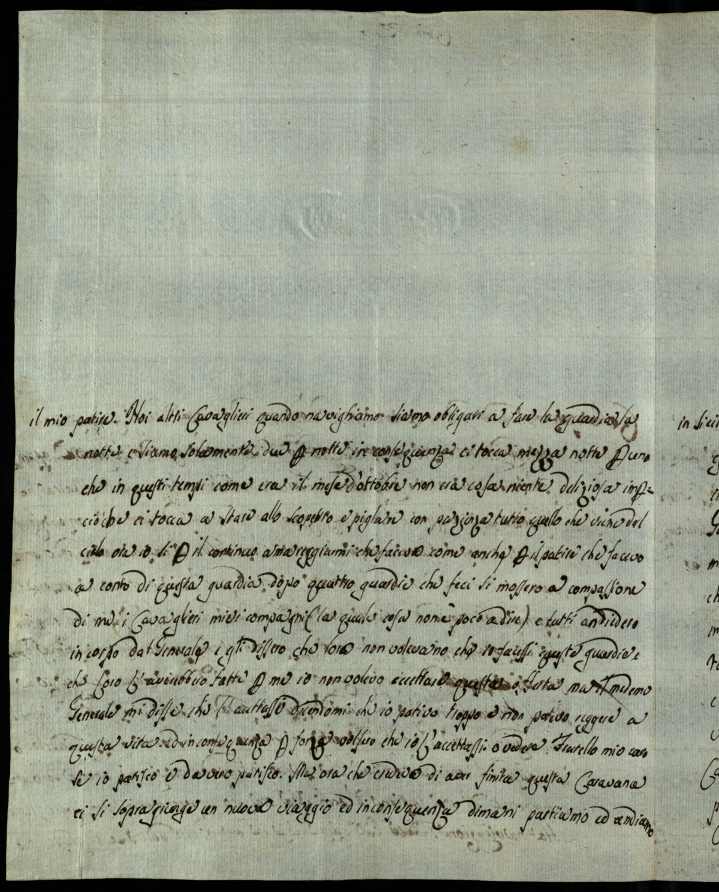 il mio patire. Noi altri Cavaglieri quando navighiamo siamo obligati a fare la guardia la
notte e siamo solamente due p notte in consequenza ci tocca mezza notte p uno
che in questi tempi come era il mese d'ottobre non era cosa niente deliziosa imper
cioche ci tocca a stare alo scoperto e pigliare con pazienza tutto quello che viene del
cielo ora io sì p il continuo amareggiarmi che facevo come anche p il patire che facevo
a conto di questa guardia dopo quattro guardie che feci si mossero a compassione
di me i Cavaglieri miei compagni (la quale cosa non è poco a dire) e tutti andidero
in corpo dal Generale i gli dissero che loro non volevano che io facessi queste guardie e
che loro l'averebbero fatte p me io non volevo accettare questa oferta ma il medemo
Generale mi disse che l'accettassi dicendomi che io pativo troppo e non potevo reggere a
questa vita ed in consequenza p forza volsero che io l'accettassi o vedera Fratello mio caro
se io patisco e davero patisco. Ma ora che credevo di aver finita questa Caravana
ci si sopragiunge un nuovo viaggio ed in consequenza dimani partiamo ed andiamo
in